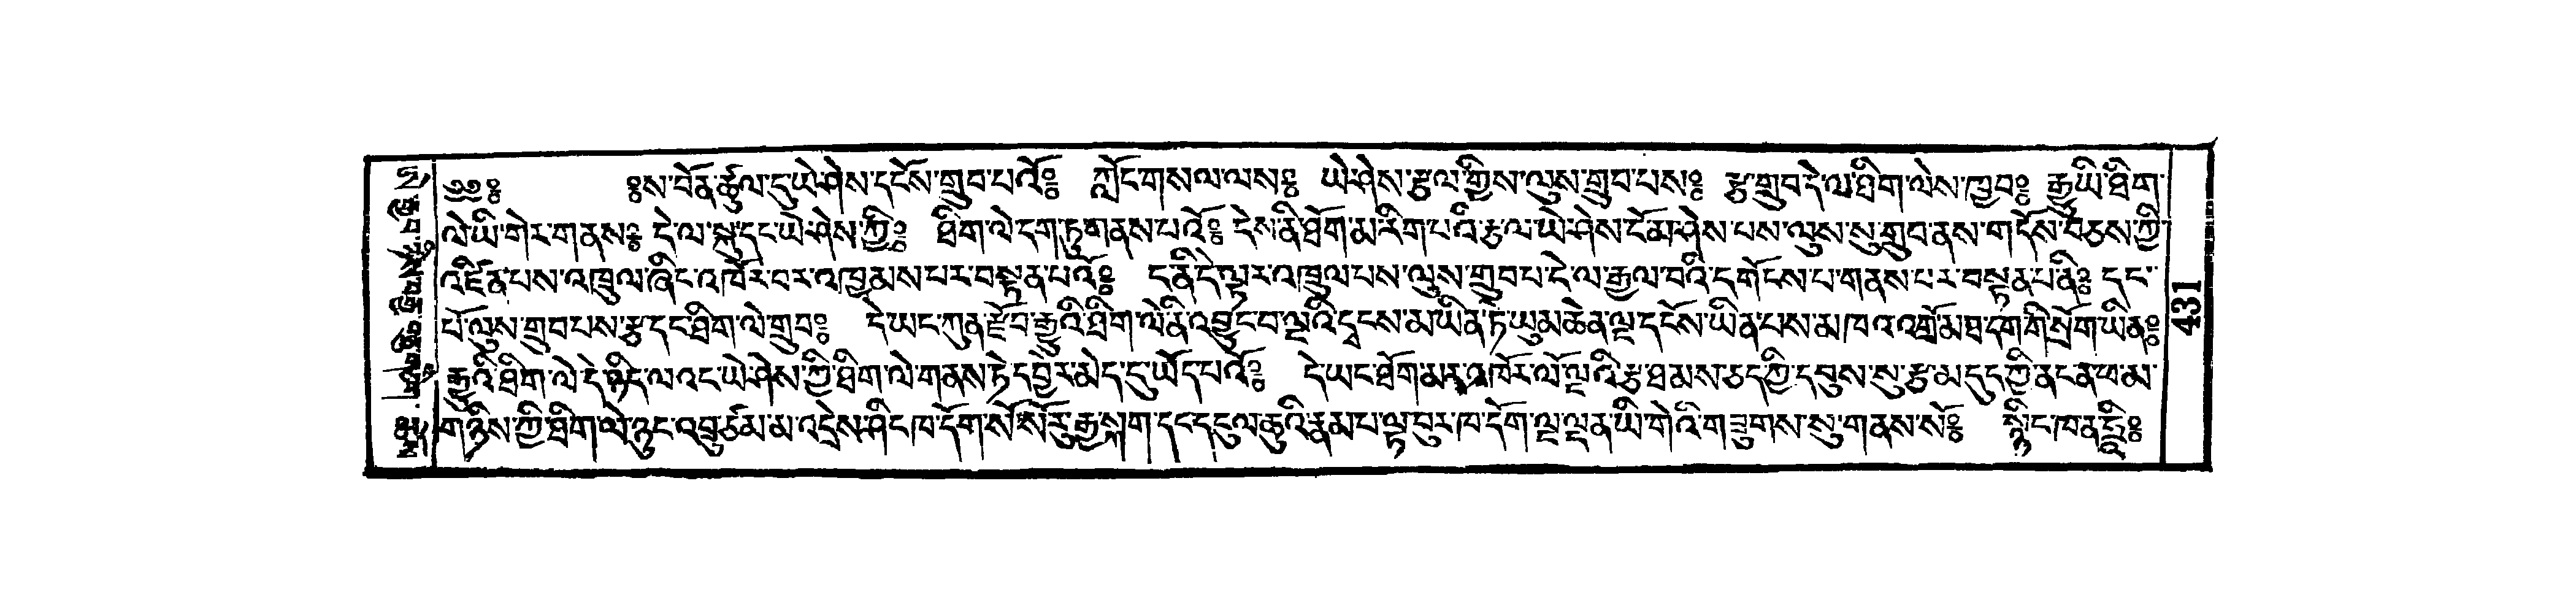 ༄༅༔ ༔ས་བོན་ཚུལ་དུ་ཡེ་ཤེས་དངོས་གྲུབ་པའོ༔ ཀློང་གསལ་ལས༔ ཡེ་ཤེས་རྩལ་གྱིས་ལུས་གྲུབ་པས༔ རྩ་གྲུབ་དེ་ལ་ཐིག་ལེས་ཁྱབ༔ རྒྱུ་ཡི་ཐིག་
ལེ་ཡི་གེར་གནས༔ དེ་ལ་སྐུ་དང་ཡེ་ཤེས་ཀྱི༔ ཐིག་ལེ་དག་ཏུ་གནས་པའོ༔ དེས་ནི་ཐོག་མ་རིག་པའི་རྩལ་ཡེ་ཤེས་ངོ་མ་ཤེས་པས་ལུས་སུ་གྲུབ་ནས་གདོས་བཅས་ཀྱི་
འཛིན་པས་འཁྲུལ་ཞིང་འཁོར་བར་འཁྱམས་པར་བསྟན་པའོ༔ ད་ནི་དེ་ལྟར་འཁྲུལ་པས་ལུས་གྲུབ་པ་དེ་ལ་རྒྱལ་བའི་དགོངས་པ་གནས་པར་བསྟན་པ་ནི༔ དང་
པོ་ལུས་གྲུབ་པས་རྩ་དང་ཐིག་ལེ་གྲུབ༔ དེ་ཡང་ཀུན་རྫོབ་རྒྱུའི་ཐིག་ལེ་ནི་འབྱུང་བ་ལྔའི་དྭངས་མ་ཡིན་ཏེ་ཡུམ་ཆེན་ལྔ་དངོས་ཡིན་པས་མཁའ་འགྲོ་མ་ཐ་དག་གི་སྲོག་ཡིན༔
རྒྱུའི་ཐིག་ལེ་དེ་ཉིད་ལ་འང་ཡེ་ཤེས་ཀྱི་ཐིག་ལེ་གནས་ཏེ་དབྱེར་མེད་དུ་ཡོད་པའོ༔ དེ་ཡང་ཐོག་མར་འཁོར་ལོ་ལྔའི་རྩ་ཐམས་ཅད་ཀྱི་དབུས་སུ་རྩ་མ་དུད་ཀྱི་ནང་ན་ཕ་མ་
གཉིས་ཀྱི་ཐིག་ལེ་ཉུང་འབྲུ་ཙམ་མ་འདྲེས་ཤིང་ཁ་དོག་སོ་སོ་རུ་རྒྱ་སྐག་དང་དངུལ་ཆུའི་རྣམ་པ་ལྟ་བུར་ཁ་དོག་ལྔ་ལྡན་ཡི་གེའི་གཟུགས་སུ་གནས་སོ༔ སྙིང་ཁ་ན་ཧཱུྃ༔